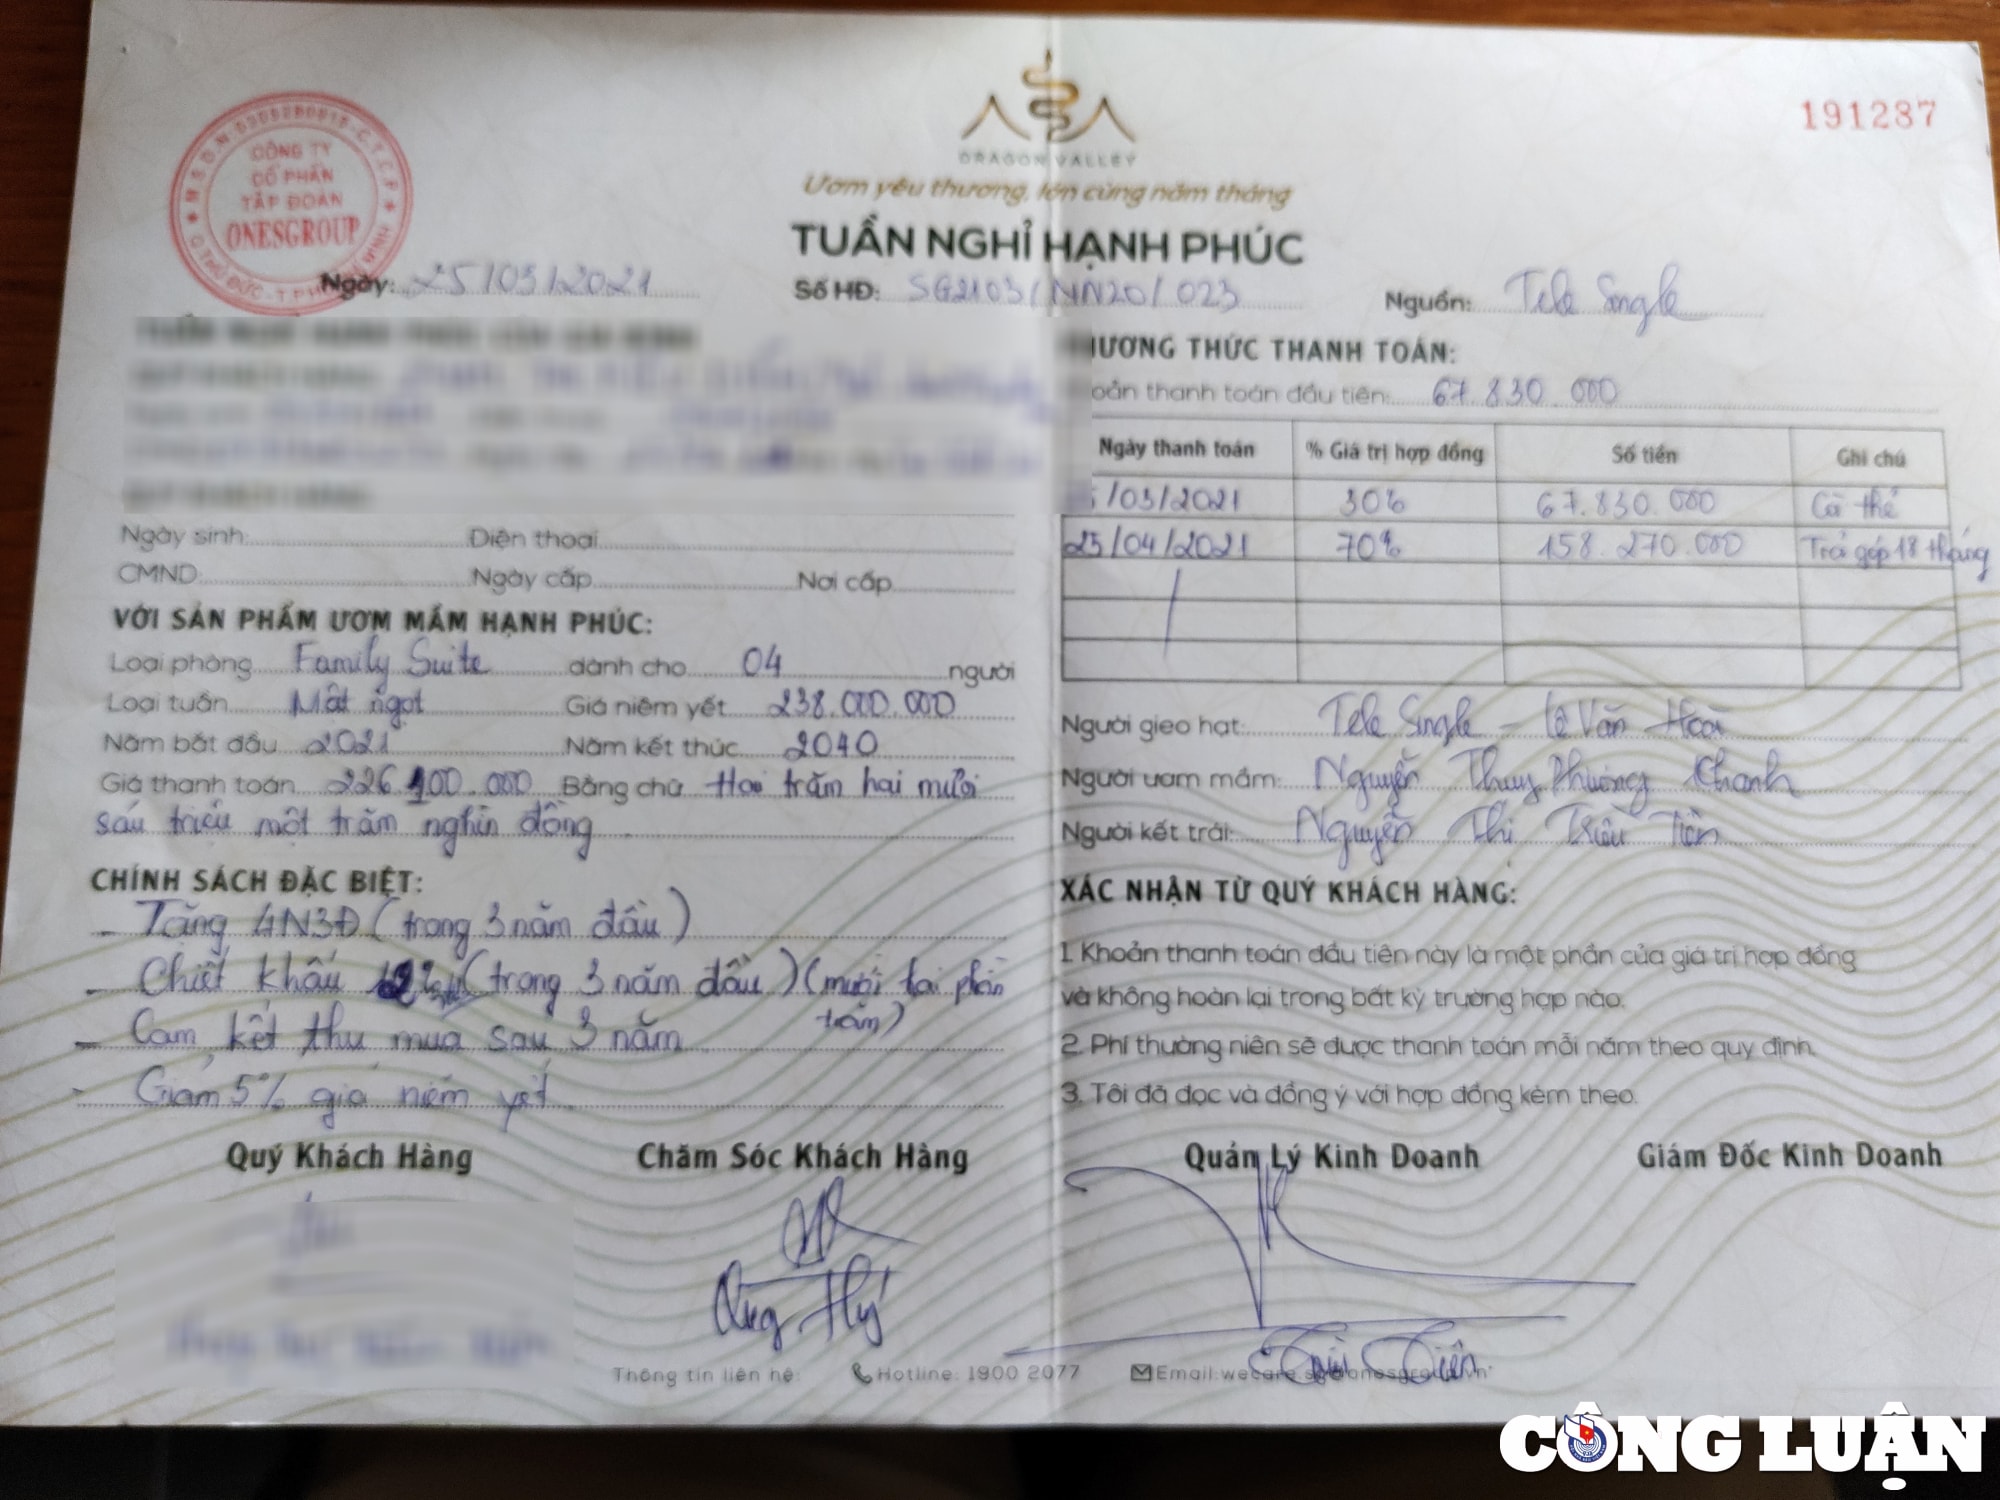 191287
CÔNG TY
CỔ PHẦN
TẬP ĐOÀN
ONESGROUP
DRAGON VALLEY
Ươm yêu thương, lớn cùng năm tháng
TUẦN NGHỈ HẠNH PHÚC
Ngày: 25/03/2021
Số HĐ: SG2103/NN20/023
Nguồn: Tele Single
Ngày sinh: Điện thoại
CMND: Ngày cấp Nơi cấp
VỚI SẢN PHẨM ƯƠM MẦM HẠNH PHÚC:
Loại phòng Family Suite dành cho 04 người
Loại tuần Mật ngọt Giá niêm yết 238.000.000
Năm bắt đầu 2021 Năm kết thúc 2040
Giá thanh toán 226.100.000 Bằng chữ Hai trăm hai mươi
sáu triệu một trăm nghìn đồng
CHÍNH SÁCH ĐẶC BIỆT:
- Tặng 4N3Đ (trong 3 năm đầu)
- Chiết khấu (trong 3 năm đầu) (mười hai phần
trăm)
- Cam kết thu mua sau 3 năm
- Giảm 5% giá niêm yết
ƯƠNG THỨC THANH TOÁN:
oản thanh toán đầu tiên: 67.830.000
Ngày thanh toán % Giá trị hợp đồng Số tiền Ghi chú
/03/2021 30% 67.830.000 Cà thẻ
25/04/2021 70% 158.270.000 Trả góp 18 tháng
Người gieo hạt: Tele Single - Lê Văn Hoài
Người ươm mầm: Nguyễn Thụy Phương Khanh
Người kết trái: Nguyễn Thị Tiên
XÁC NHẬN TỪ QUÝ KHÁCH HÀNG:
1. Khoản thanh toán đầu tiên này là một phần của giá trị hợp đồng
và không hoàn lại trong bất kỳ trường hợp nào.
2. Phí thường niên sẽ được thanh toán mỗi năm theo quy định.
3. Tôi đã đọc và đồng ý với hợp đồng kèm theo.
Quý Khách Hàng Chăm Sóc Khách Hàng Quản Lý Kinh Doanh Giám Đốc Kinh Doanh
Thông tin liên hệ: Hotline: 1900 2077 Email:
CÔNG LUẬN